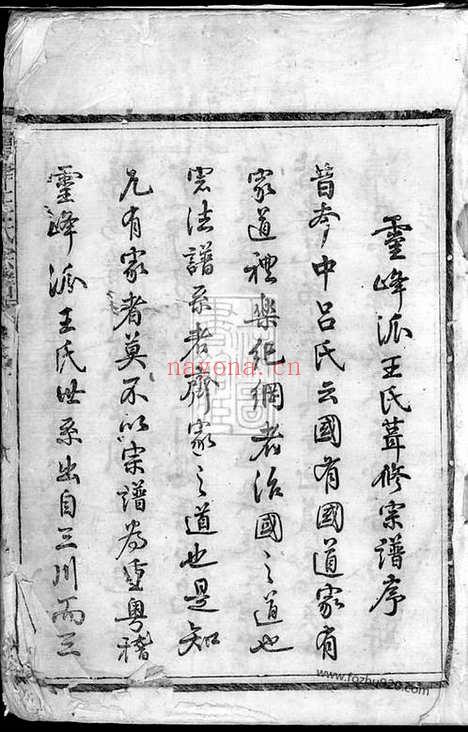 靈峰派王氏葺修宗譜序
昔本中呂氏云國有國道家有
家道禮樂紀綱者治國之道也
宗法譜系者齊家之道也是知
凡有家者莫不以宗譜為重粵稽
靈峰派王氏世系出自三川而三
nayona.cn
www.fozhu920.com